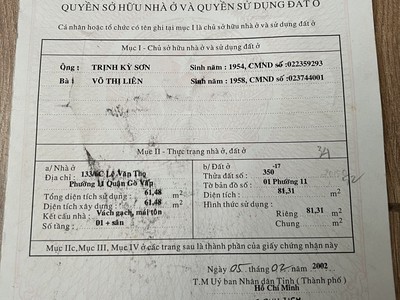 QUYỀN SỞ HỮU NHÀ Ở VÀ QUYỀN SỬ DỤNG ĐẤT Ở
Cá nhân hoặc tổ chức có tên ghi tại mục I là chủ sở hữu nhà ở và sử dụng đất ở
Mục I - Chủ sở hữu nhà ở và sử dụng đất ở
Ông : TRỊNH KỶ SƠN Sinh năm : 1954, CMND số :022359293
Bà : VÕ THỊ LIÊN Sinh năm : 1958, CMND số :023744001
Mục II - Thực trạng nhà ở, đất ở
a/ Nhà ở
Địa chỉ : 133/6C Lê Văn Thọ
Phường 11 Quận Gò Vấp
Tổng diện tích sử dụng : 61,48 m²
Diện tích xây dựng : 61,48 m²
Kết cấu nhà : Vách gạch, mái tôn
Số tầng : 01 + sân
b/ Đất ở -17
Thửa đất số : 350
Tờ bản đồ số : 01 Phường 11
Diện tích : 81,31 m²
Hình thức sử dụng :
Riêng 81,31 m²
Chung m²
Mục IIc, Mục III, Mục IV ở các trang sau là thành phần của giấy chứng nhận này
Ngày 05 tháng 02 2002
T.M Uỷ ban Nhân dân Tỉnh ( Thành phố )
Hồ Chí Minh